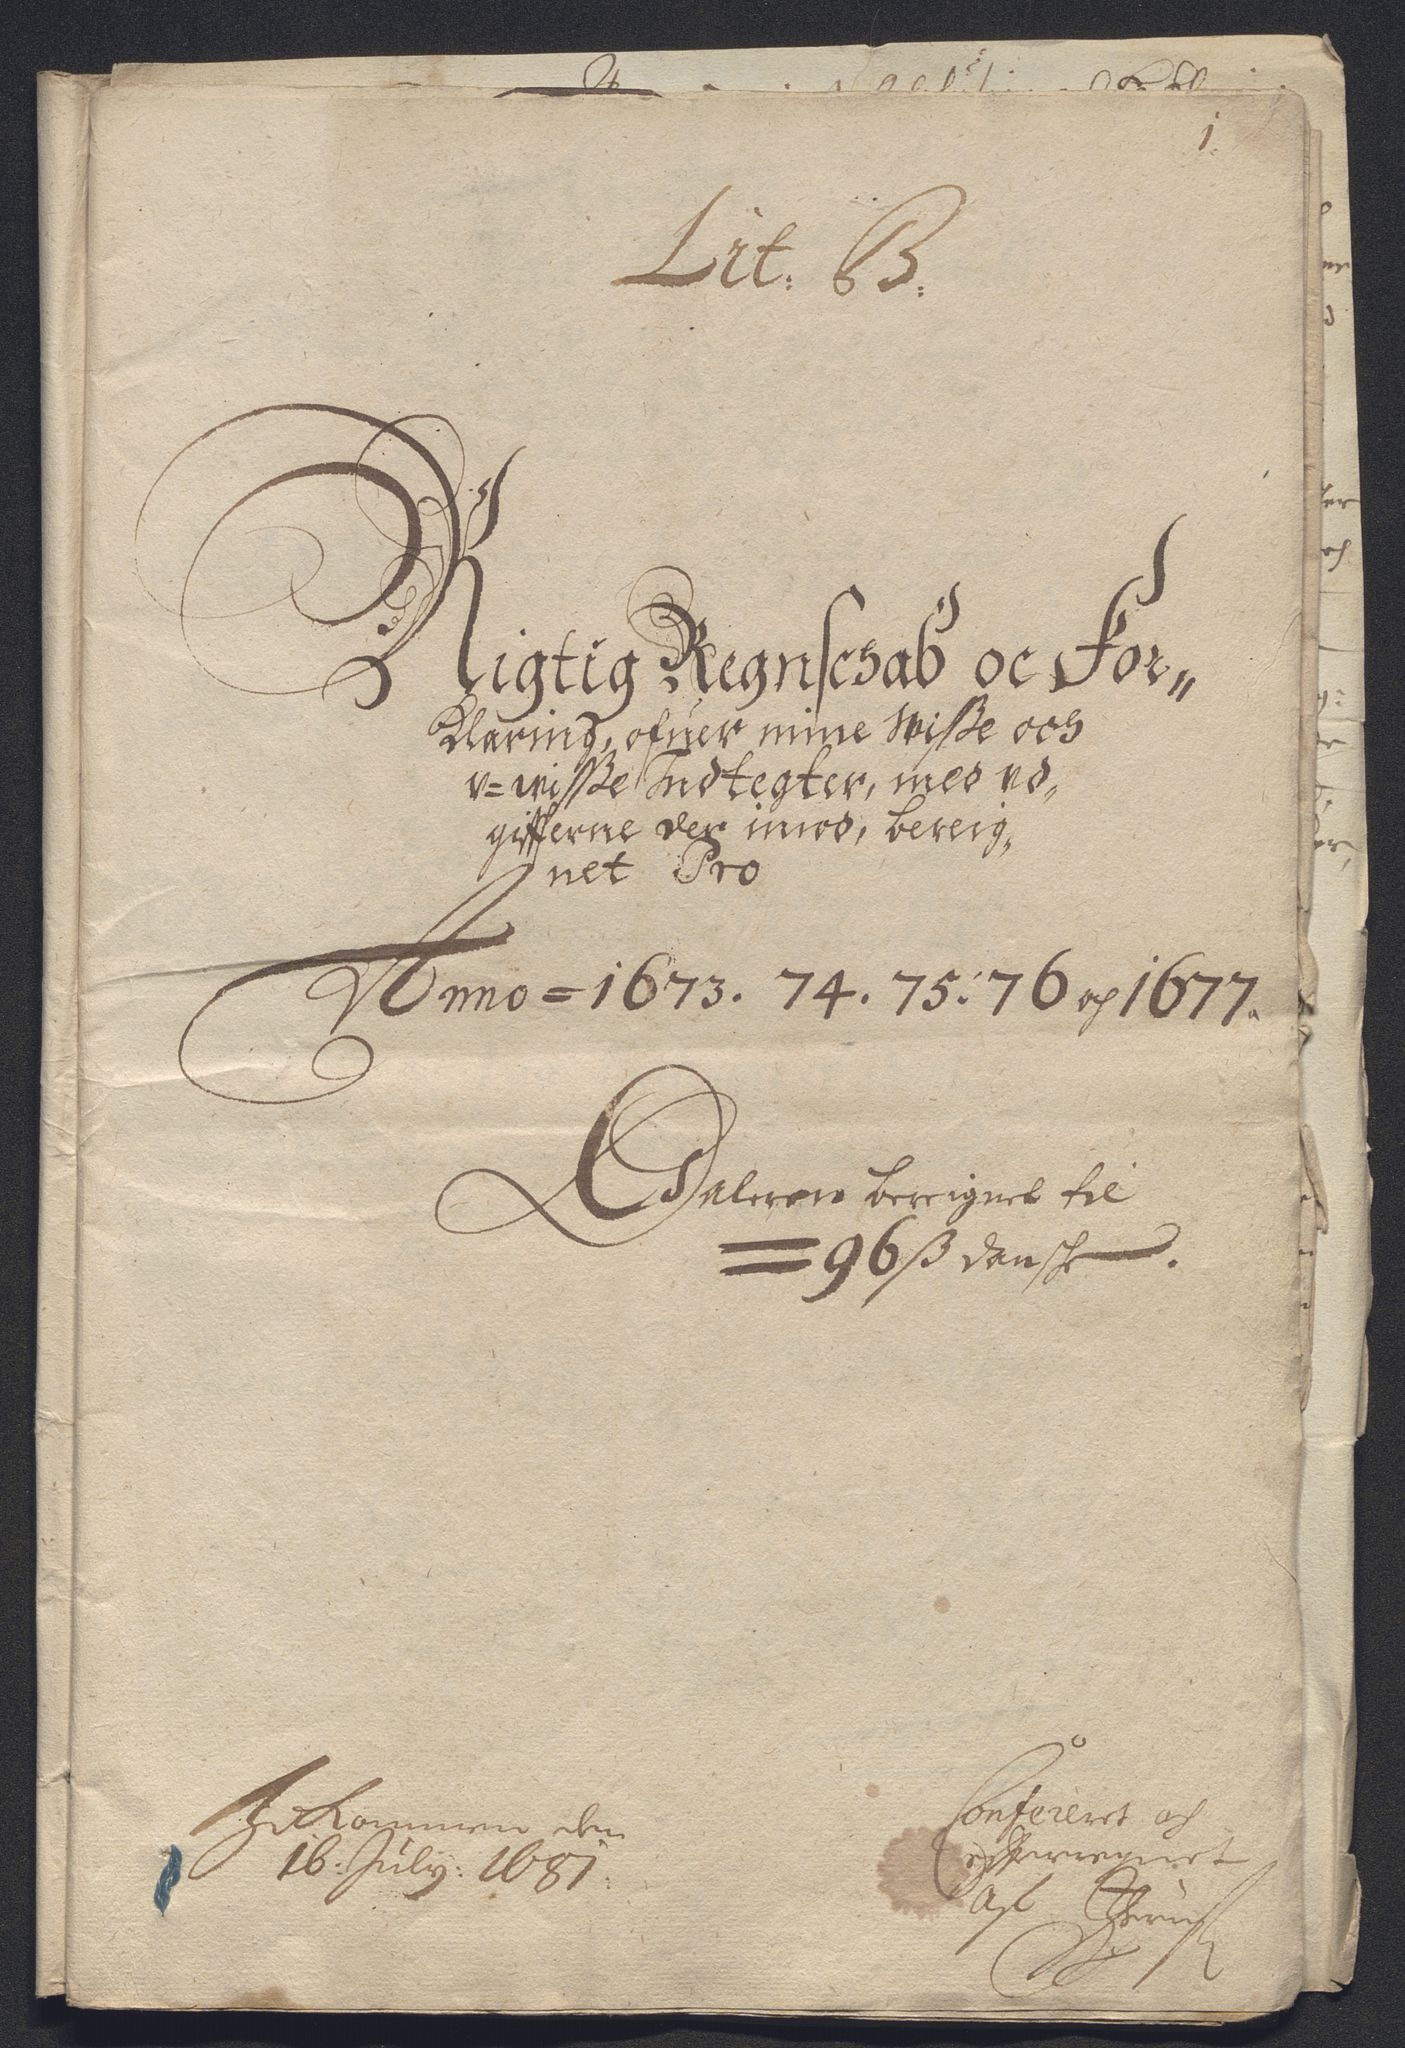 1.
Lit: B:
Rigtig Regnschab oc For„
Klaring, ofuer mine Wisse och
v=wisse Indtegter, med vd„
gifferne der imod, bereig„
net Pro
Anno = 1673. 74. 75: 76 och 1677.
Daleren bereignet til
= 96 ß danske.
Indkommen den
16: July: 1681.
Confereret och
efterregnet
Af